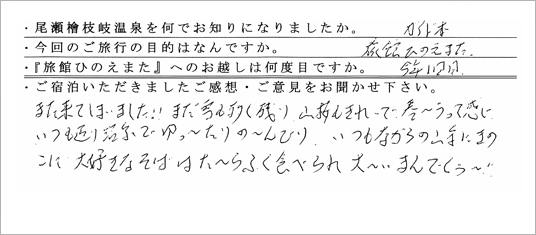 ・尾瀬檜枝岐温泉を何でお知りになりましたか。 ガイド本
・今回のご旅行の目的はなんですか。 旅館ひのえまた
・『旅館ひのえまた』へのお越しは何度目ですか。 今年1回目
・ご宿泊いただきましたご感想・ご意見をお聞かせ下さい。
また来てしまいました!! まだ雪も多く残り 山桜もきれいで 春〜うって感じ
いつも通り 温泉で ゆっ〜たり の〜んびり いつもながらの山菜にきの
こに 大好きなそば は た〜らふく食べられ 大〜いまんぞくぅ〜!